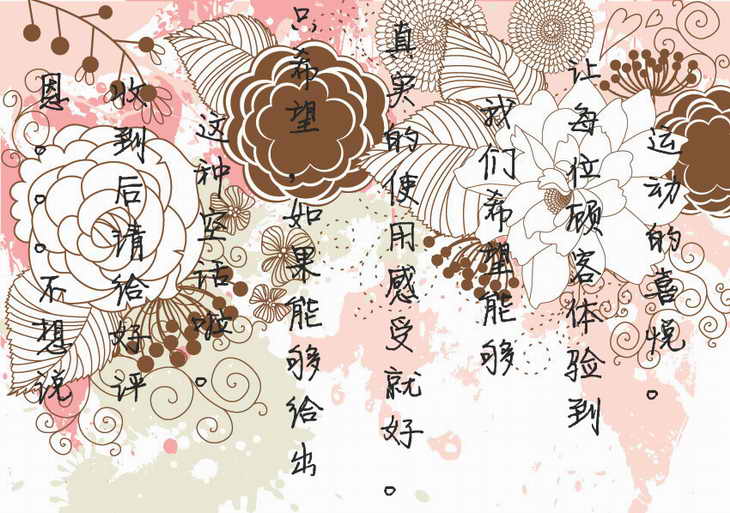 恩。。。不想说
收到后请给好评
这种空话啦。
只希望，如果能够给出
真实的使用感受就好。
我们希望能够
让每位顾客体验到
运动的喜悦。